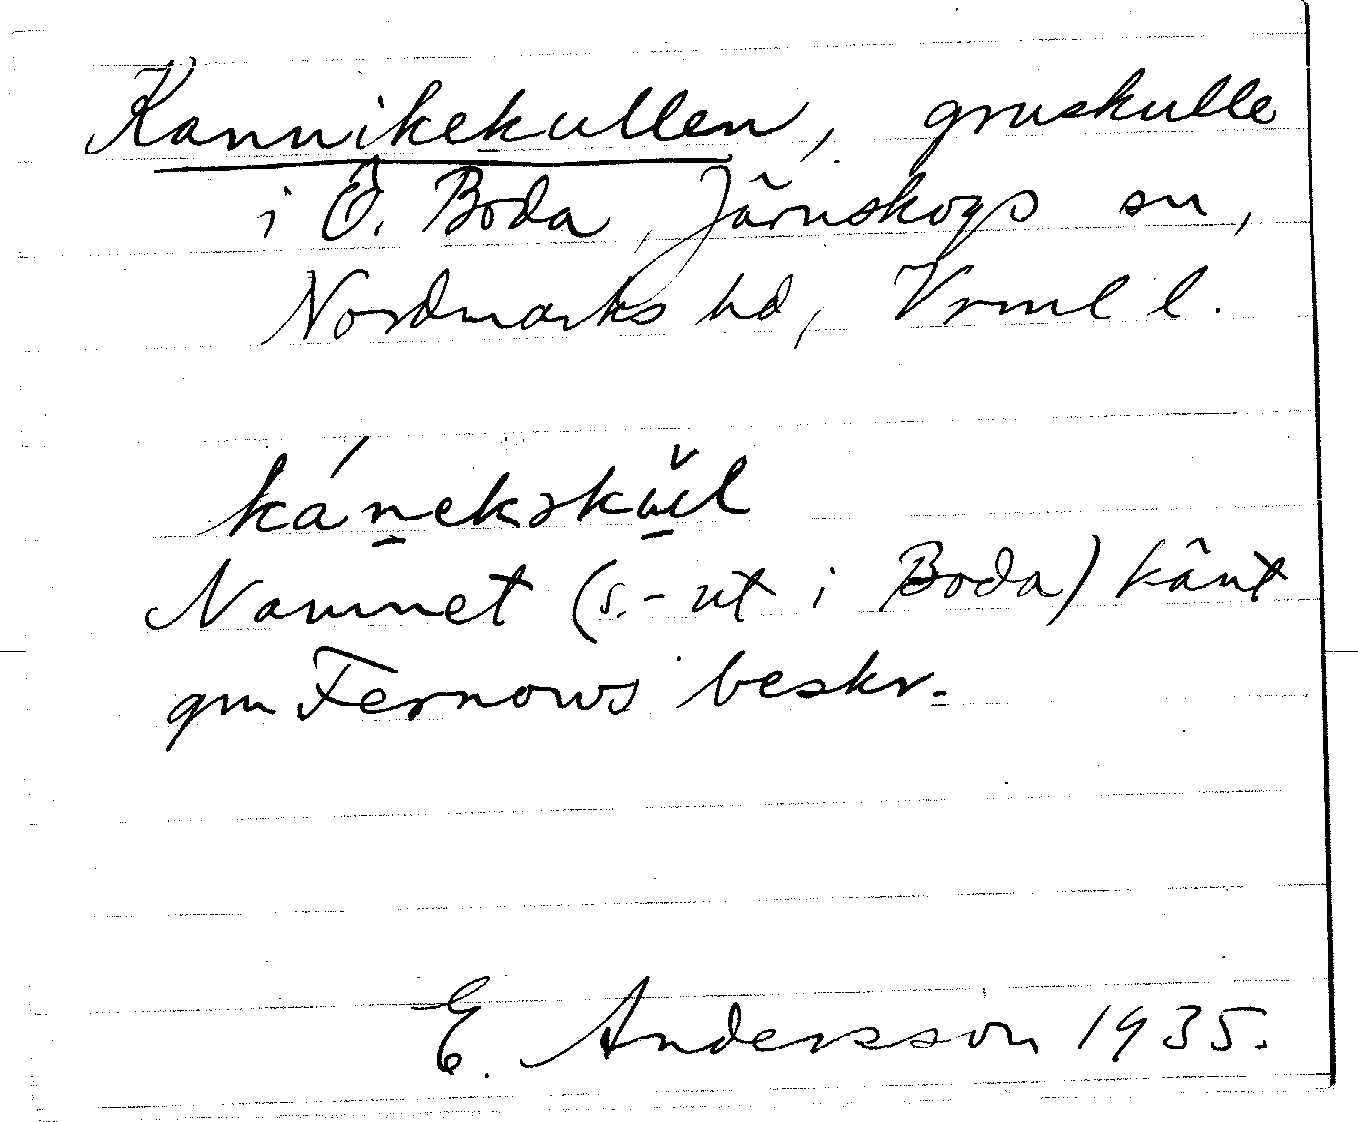 Kannikekullen, gruskulle
i Ö. Boda, Järnskogs sn,
Nordmarks hd, Vrml l.
Namnet (s.-ut i Boda) känt
gm Fernows beskr.
E. Andersson 1935.